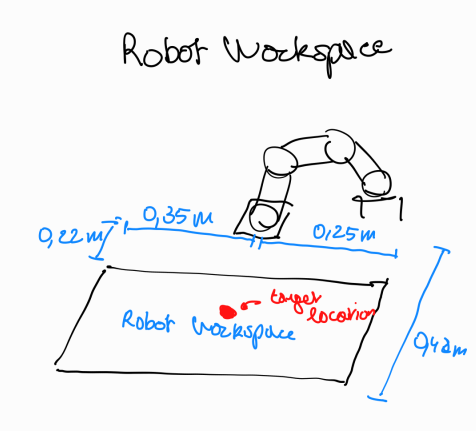 Robot Workspace
0,35m
0,25m
0,22m
target
location
Robot Workspace
0,42m